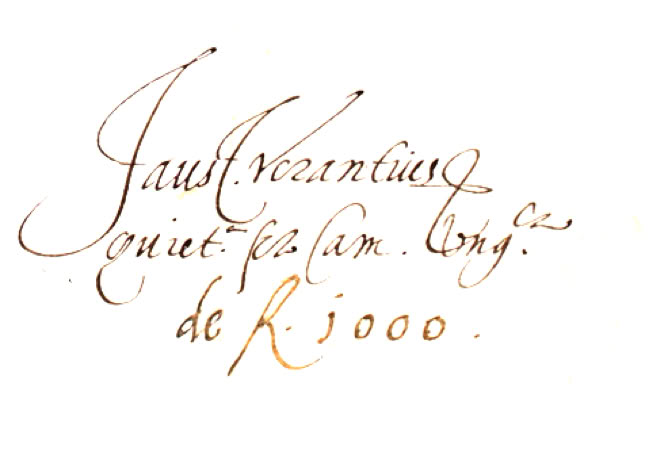 Faust. Verantius
quiet. Cam. Vng.
de R. 1000.